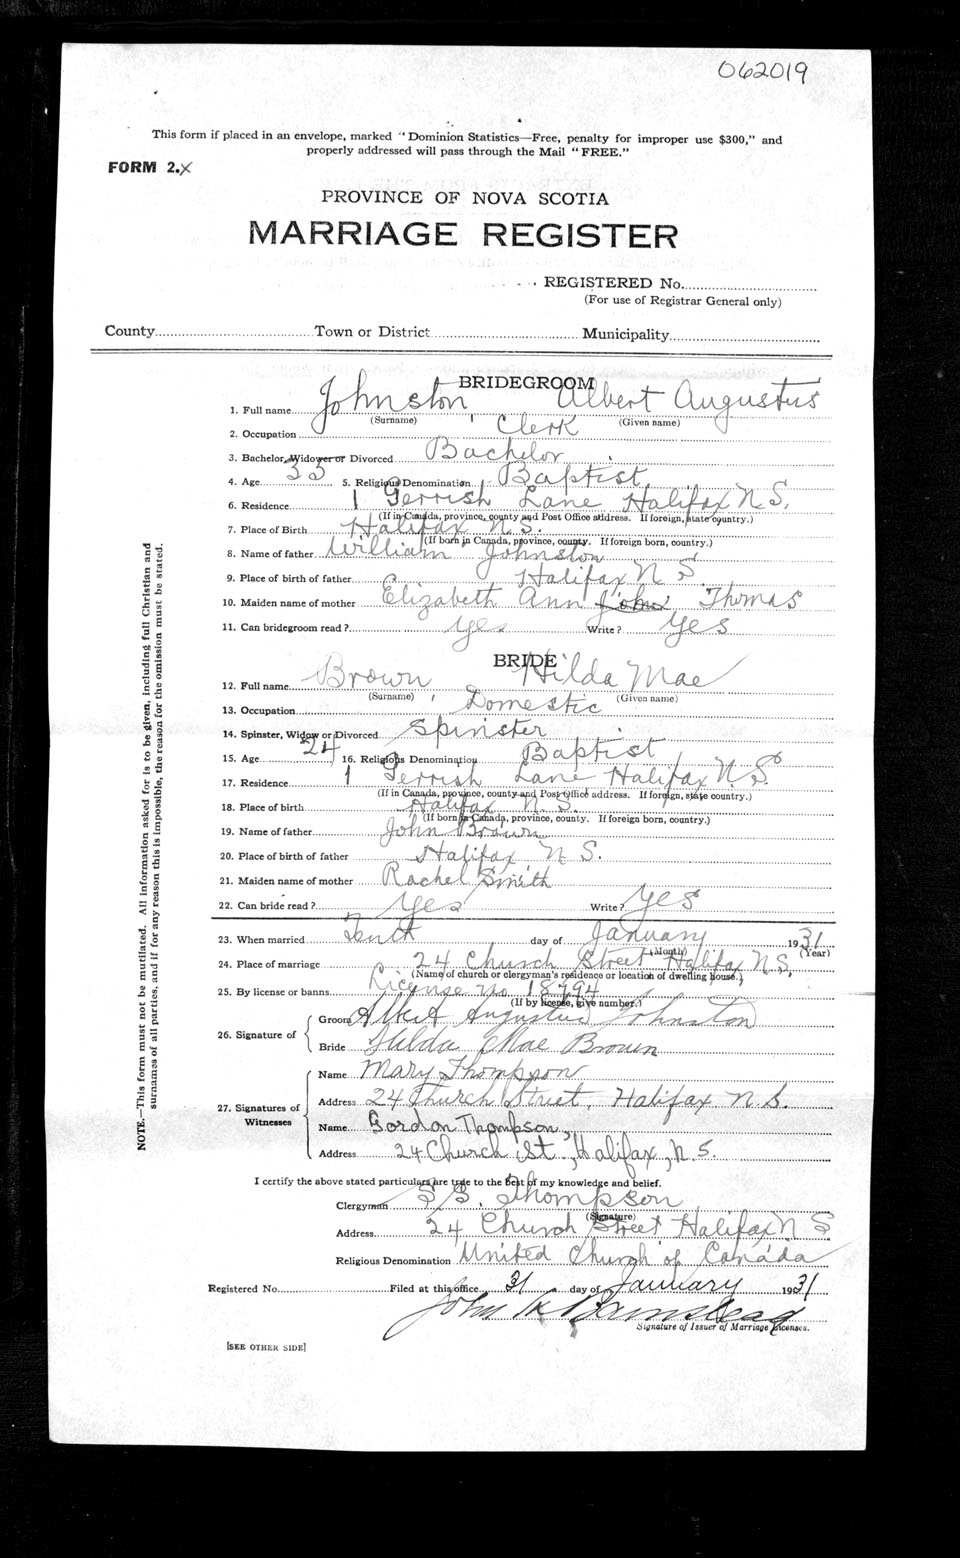 062019
This form if placed in an envelope, marked "Dominion Statistics—Free, penalty for improper use $300," and
properly addressed will pass through the Mail "FREE."
FORM 2.X
PROVINCE OF NOVA SCOTIA
MARRIAGE REGISTER
REGISTERED No.
(For use of Registrar General only)
County Town or District Municipality
BRIDEGROOM
1. Full name Johnston Albert Augustus
(Surname) (Given name)
2. Occupation Clerk
3. Bachelor, Widower or Divorced Bachelor
4. Age 33 5. Religious Denomination Baptist
6. Residence 1 Gerrish Lane Halifax N.S.
(If in Canada, province, county and Post Office address. If foreign, state country.)
7. Place of Birth Halifax N.S.
(If born in Canada, province, county. If foreign born, country.)
8. Name of father William Johnston
9. Place of birth of father Halifax N S.
10. Maiden name of mother Elizabeth Ann John Thomas
11. Can bridegroom read? yes Write? yes
BRIDE
12. Full name Brown Hilda Mae
(Surname) (Given name)
13. Occupation Domestic
14. Spinster, Widow or Divorced Spinster
15. Age 24 16. Religious Denomination Baptist
17. Residence 1 Gerrish Lane Halifax N.S.
(If in Canada, province, county and Post Office address. If foreign, state country.)
18. Place of birth Halifax N.S.
(If born in Canada, province, county. If foreign born, country.)
19. Name of father John Brown
20. Place of birth of father Halifax N S.
21. Maiden name of mother Rachel Smith
22. Can bride read? yes Write? yes
23. When married Tenth day of January 1931
(Month) (Year)
24. Place of marriage 24 Church Street Halifax N S.
(Name of church or clergyman's residence or location of dwelling house.)
25. By license or banns License no 18794
(If by license, give number.)
26. Signature of
Groom Albert Augustus Johnston
Bride Hilda Mae Brown
27. Signatures of Witnesses
Name Mary Thompson
Address 24 Church Street, Halifax N.S.
Name Gordon Thompson,
Address 24 Church St., Halifax, N.S.
I certify the above stated particulars are true to the best of my knowledge and belief.
Clergyman Thompson
(Signature)
Address 24 Church Street Halifax N S
Religious Denomination United Church of Canada
Registered No. Filed at this office 31 day of January 1931
John
Signature of Issuer of Marriage Licenses.
[SEE OTHER SIDE]
NOTE.—This form must not be mutilated. All information asked for is to be given, including full Christian and
surnames of all parties, and if for any reason this is impossible, the reason for the omission must be stated.